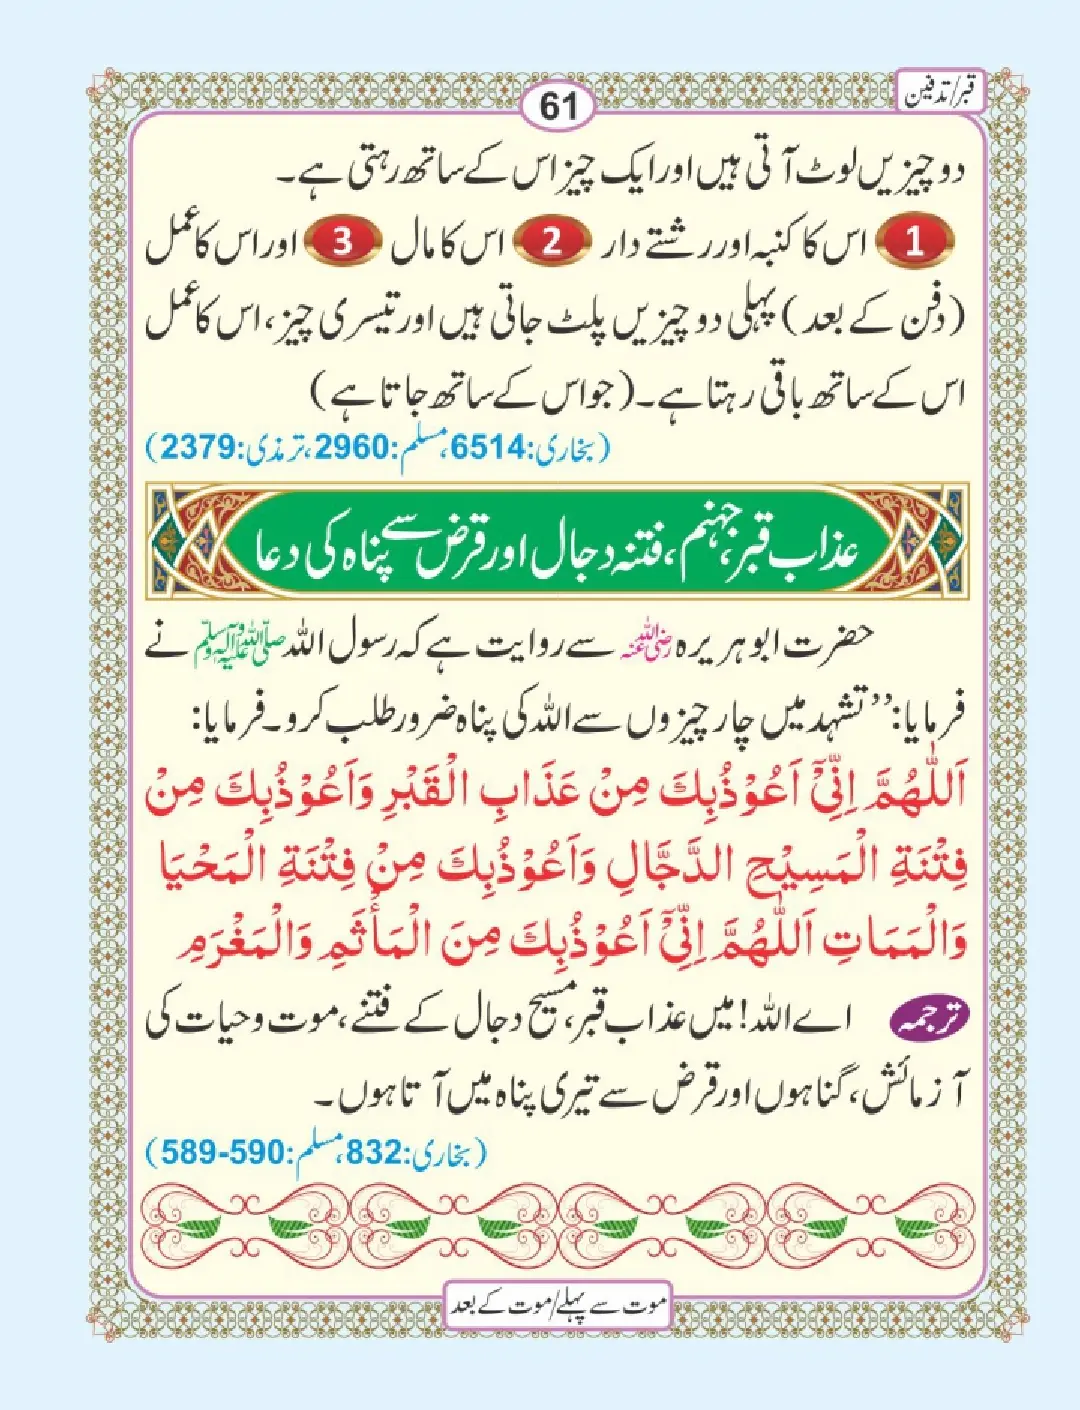 قبر/تدفین
61
دو چیزیں لوٹ آتی ہیں اور ایک چیز اس کے ساتھ رہتی ہے۔
1 اس کا کنبہ اور رشتے دار 2 اس کا مال 3 اور اس کا عمل
(دفن کے بعد) پہلی دو چیزیں پلٹ جاتی ہیں اور تیسری چیز، اس کا عمل
اس کے ساتھ باقی رہتا ہے۔ (جو اس کے ساتھ جاتا ہے)
(بخاری:6514، مسلم:2960، ترمذی:2379)
عذاب قبر، جہنم، فتنہ دجال اور قرض سے پناہ کی دعا
حضرت ابو ہریرہ رضی اللہ عنہ سے روایت ہے کہ رسول اللہ صلی اللہ علیہ وآلہ وسلم نے
فرمایا: ’’تشہد میں چار چیزوں سے اللہ کی پناہ ضرور طلب کرو۔ فرمایا:
اَللّٰهُمَّ اِنِّیْٓ اَعُوْذُبِكَ مِنْ عَذَابِ الْقَبْرِ وَاَعُوْذُبِكَ مِنْ
فِتْنَةِ الْمَسِیْحِ الدَّجَّالِ وَاَعُوْذُبِكَ مِنْ فِتْنَةِ الْمَحْیَا
وَالْمَمَاتِ اَللّٰهُمَّ اِنِّیْٓ اَعُوْذُبِكَ مِنَ الْمَأْثَمِ وَالْمَغْرَمِ
ترجمہ اے اللہ! میں عذاب قبر، مسیح دجال کے فتنے، موت و حیات کی
آزمائش، گناہوں اور قرض سے تیری پناہ میں آتا ہوں۔
(بخاری:832، مسلم:590-589)
موت سے پہلے/موت کے بعد